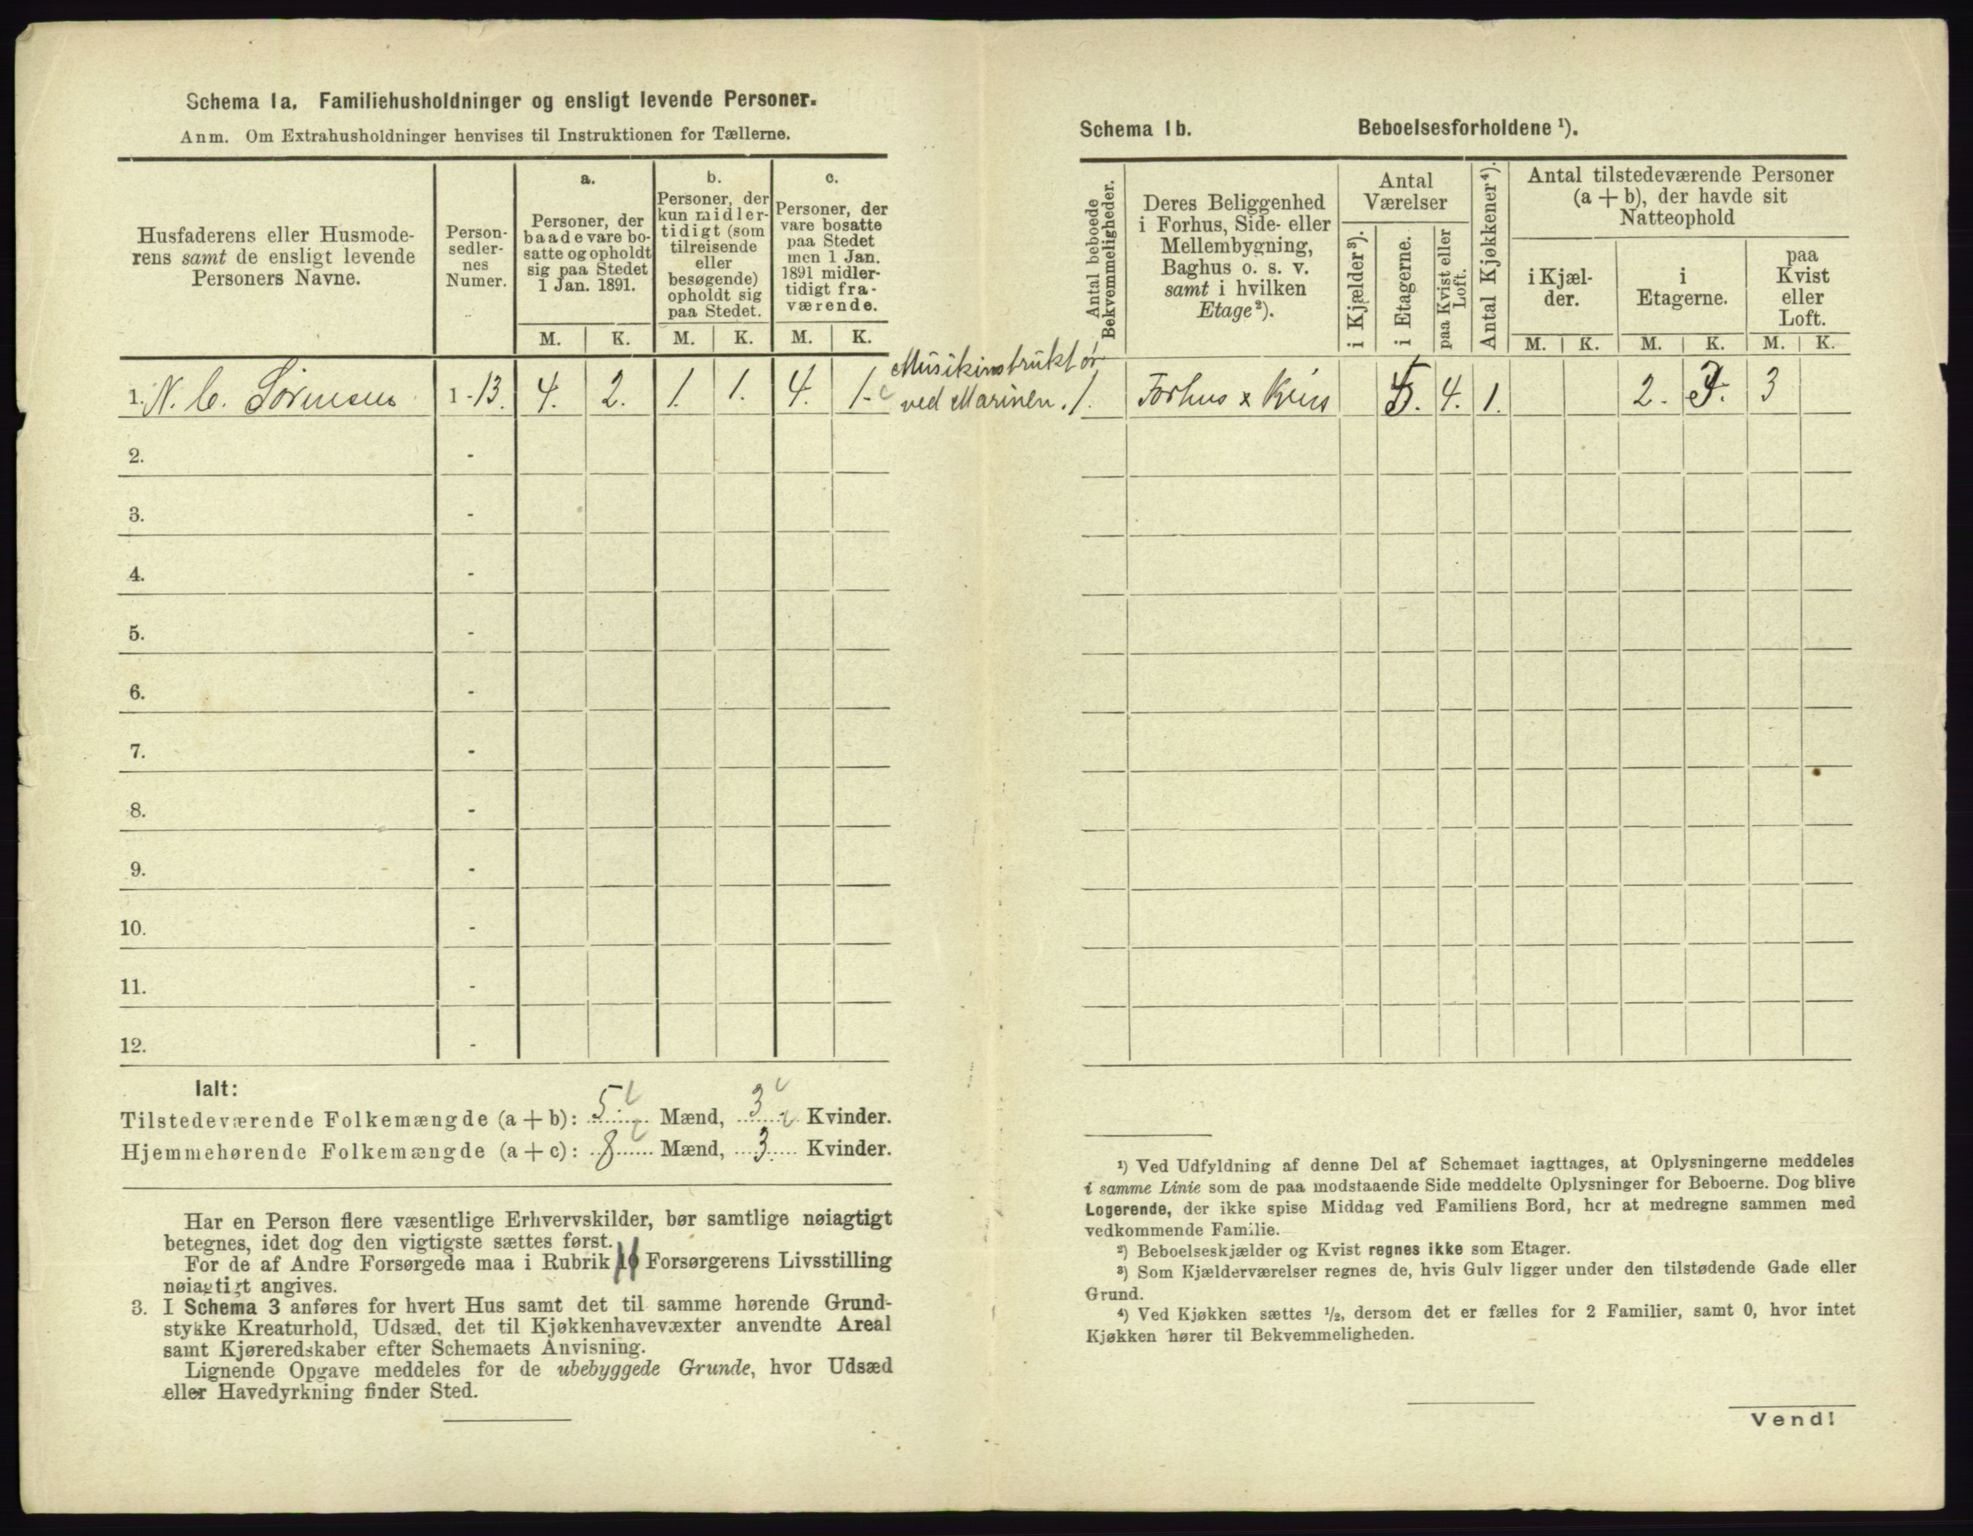 Schema 1 a. Familiehusholdninger og ensligt levende Personer.
Anm. Om Extrahusholdninger henvises til Instruktionen for Tællerne.
Husfaderens eller Husmode-
rens samt de ensligt levende
Personers Navne.
Person-
sedler-
nes
Numer.
a.
Personer, der
baade vare bo-
satte og opholdt
sig paa Stedet
1 Jan. 1891.
b.
Personer, der
kun midler-
tidigt (som
tilreisende
eller
besøgende)
opholdt sig
paa Stedet.
c.
Personer, der
vare bosatte
paa Stedet
men 1 Jan.
1891 midler-
tidigt fra-
værende.
M. K. M. K. M. K.
1. N. C. Sørensen 1 - 13. 4. 2. 1. 1. 4. 1.
Musikinstruktør
ved Marinen.
2. -
3. -
4. -
5. -
6. -
7. -
8. -
9. -
10. -
11. -
12. -
Ialt:
Tilstedeværende Folkemængde (a + b): 5 Mænd, 3 Kvinder.
Hjemmehørende Folkemængde (a + c): 8 Mænd, 3 Kvinder.
Har en Person flere væsentlige Erhvervskilder, bør samtlige nøiagtigt
betegnes, idet dog den vigtigste sættes først.
For de af Andre Forsørgede maa i Rubrik Forsørgerens Livsstilling
nøiagtigt angives.
3. I Schema 3 anføres for hvert Hus samt det til samme hørende Grund-
stykke Kreaturhold, Udsæd, det til Kjøkkenhavevæxter anvendte Areal
samt Kjøreredskaber efter Schemaets Anvisning.
Lignende Opgave meddeles for de ubebyggede Grunde, hvor Udsæd
eller Havedyrkning finder Sted.
Schema 1 b. Beboelsesforholdene ¹).
Antal beboede
Bekvemmeligheder.
Deres Beliggenhed
i Forhus, Side- eller
Mellembygning,
Baghus o. s. v.
samt i hvilken
Etage ²).
Antal
Værelser
i Kjælder ³).
i Etagerne.
paa Kvist eller
Loft.
Antal Kjøkkener ⁴).
Antal tilstedeværende Personer
(a + b), der havde sit
Natteophold
i Kjæl-
der.
i
Etagerne.
paa
Kvist
eller
Loft.
M. K. M. K. M. K.
1. Forhus 5. 4. 1. 2. 3. 3
¹) Ved Udfyldning af denne Del af Schemaet iagttages, at Oplysningerne meddeles
i samme Linie som de paa modstaaende Side meddelte Oplysninger for Beboerne. Dog blive
Logerende, der ikke spise Middag ved Familiens Bord, her at medregne sammen med
vedkommende Familie.
²) Beboelseskjælder og Kvist regnes ikke som Etager.
³) Som Kjælderværelser regnes de, hvis Gulv ligger under den tilstødende Gade eller
Grund.
⁴) Ved Kjøkken sættes ½, dersom det er fælles for 2 Familier, samt 0, hvor intet
Kjøkken hører til Bekvemmeligheden.
Vend!